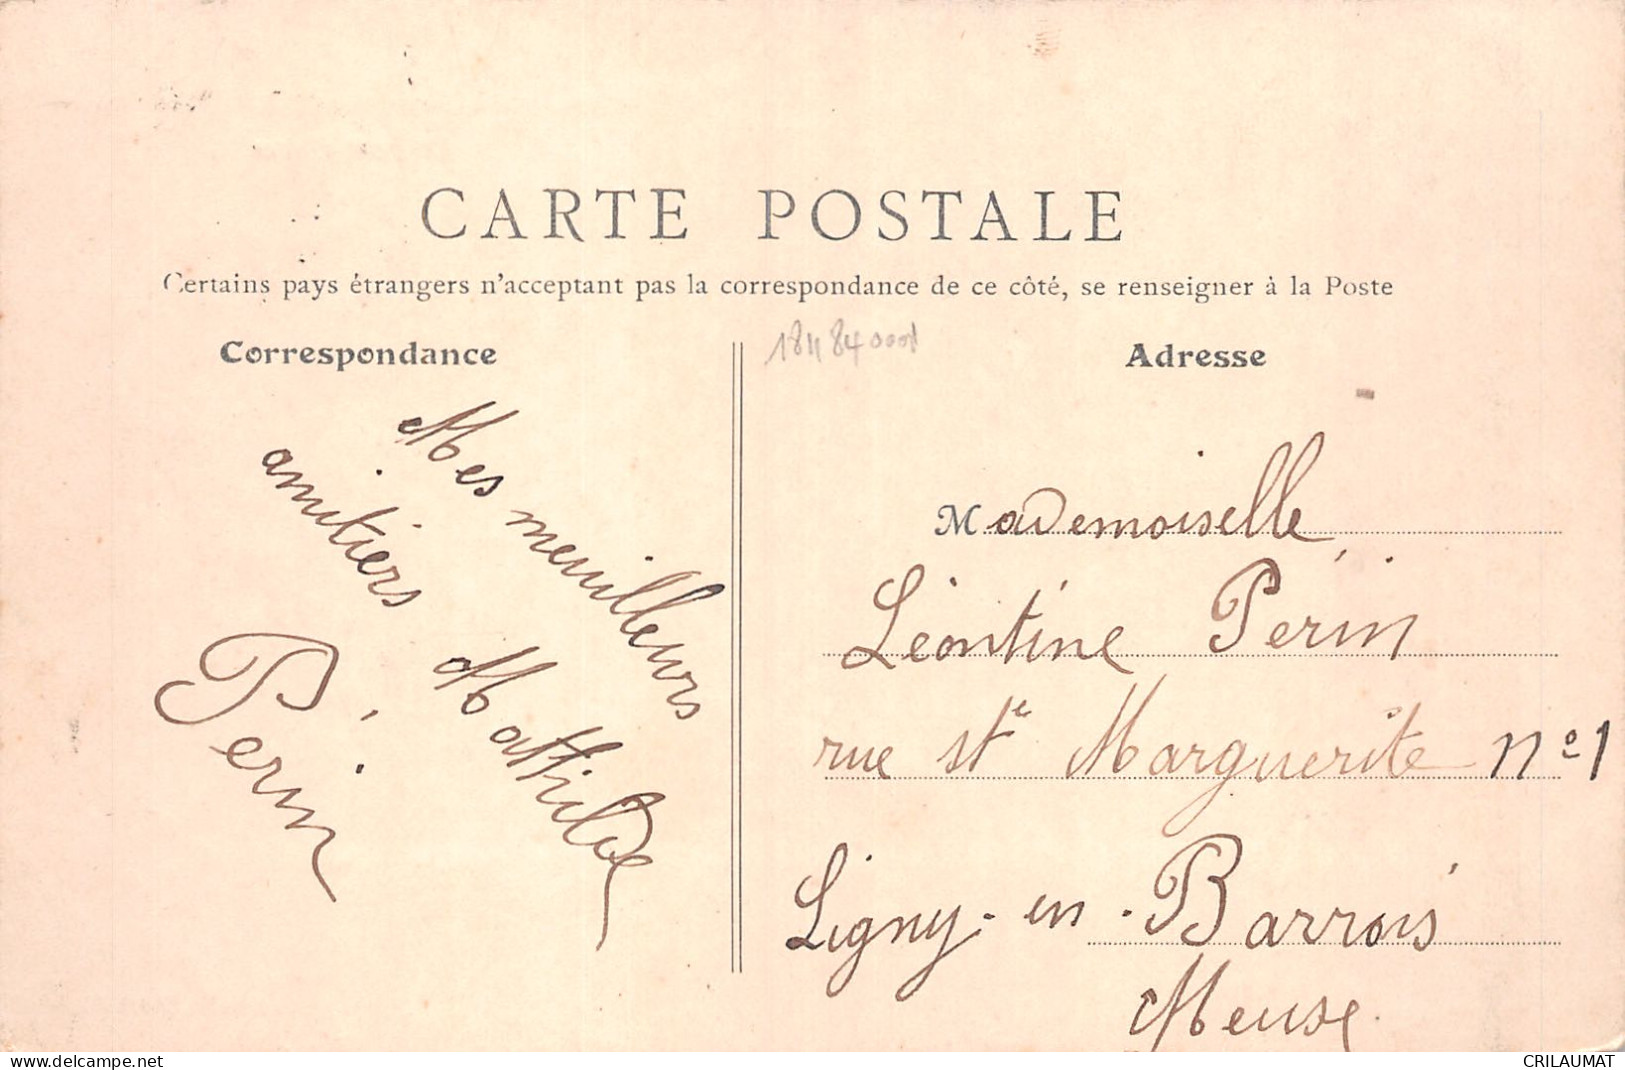 CARTE POSTALE
Certains pays étrangers n'acceptant pas la correspondance de ce côté, se renseigner à la Poste
Correspondance
Mes meuilleurs
amitiers Mathilde
Périn
Adresse
Mademoiselle
Léontine Périn
rue Ste Marguerite nº1
Ligny-en-Barrois
Meuse.
www.delcampe.net
CRILAUMAT